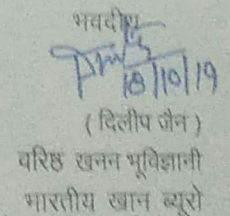 भवदीय
18/10/19
(दिलीप जैन)
वरिष्ठ खनन भूविज्ञानी
भारतीय खान ब्यूरो